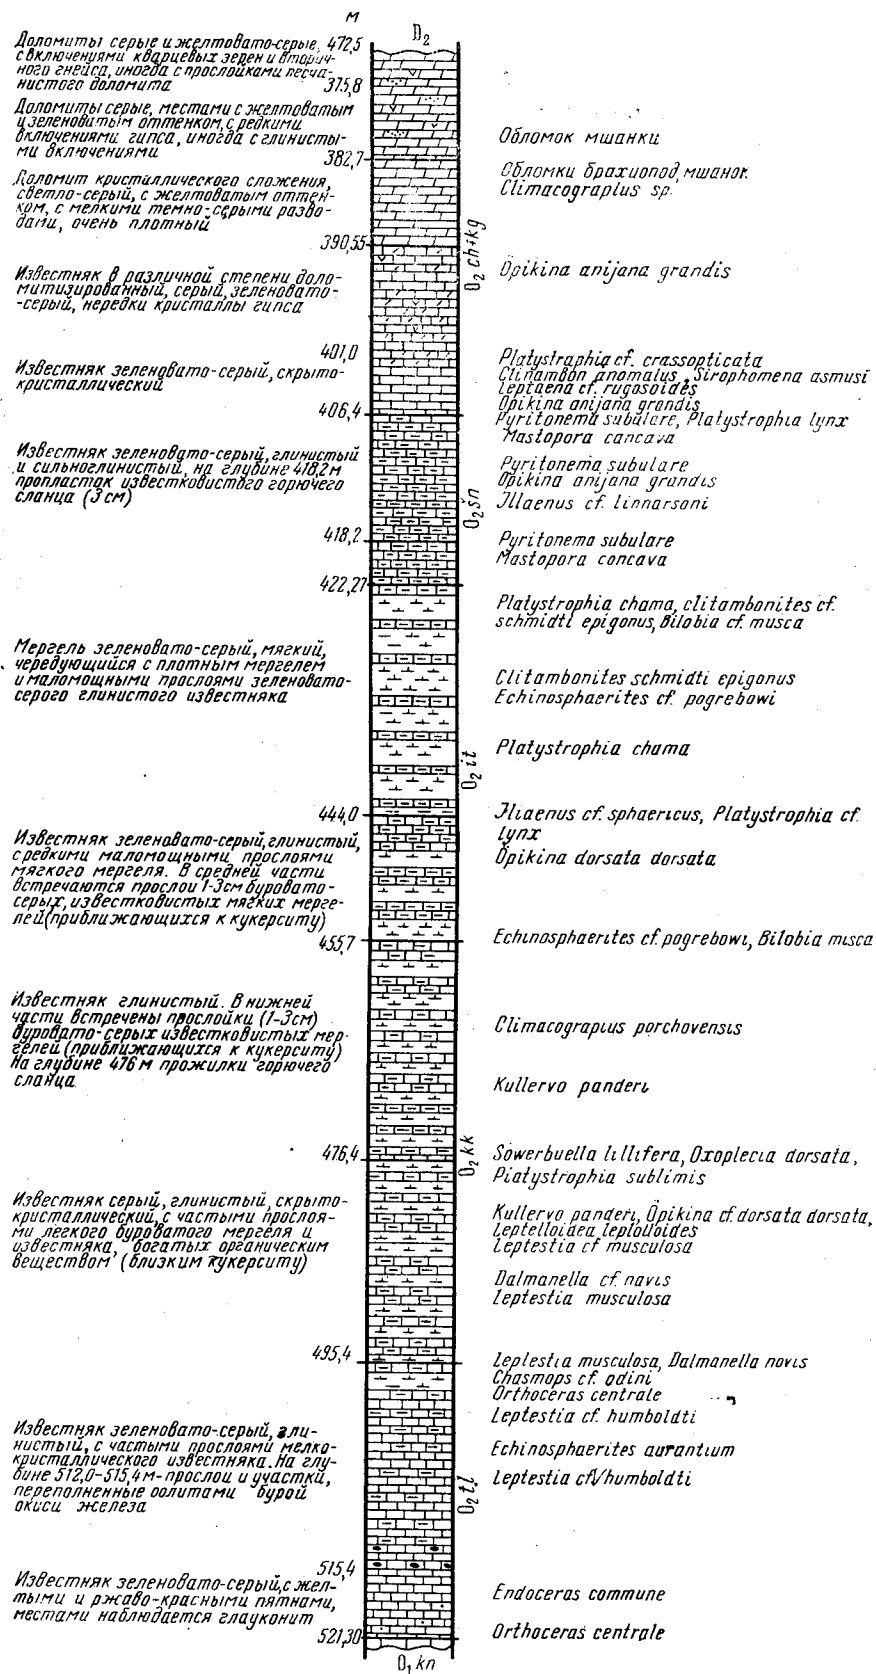 м
D₂
Доломиты серые и желтовато-серые, 472,5
с включениями кварцевых зерен и вторич-
ного гнейса, иногда с прослойками песча-
нистого доломита
375,8
Доломиты серые, местами с желтоватым
и зеленоватым оттенком, с редкими
включениями гипса, иногда с глинисты-
ми включениями
382,7
Доломит кристаллического сложения,
светло-серый, с желтоватым оттен-
ком, с мелкими темно-серыми разво-
дами, очень плотный
390,55
Известняк в различной степени доло-
митизированный, серый, зеленовато-
-серый, нередки кристаллы гипса
401,0
Известняк зеленовато-серый, скрыто-
кристаллический
406,4
Известняк зеленовато-серый, глинистый
и сильноглинистый, на глубине 418,2 м
пропласток известковистого горючего
сланца (3 см)
418,2
422,27
Мергель зеленовато-серый, мягкий,
чередующийся с плотным мергелем
и маломощными прослоями зеленовато-
серого глинистого известняка
444,0
Известняк зеленовато-серый, глинистый,
с редкими маломощными прослоями
мягкого мергеля. В средней части
встречаются прослои 1-3см буровато-
серых, известковистых мягких мерге-
лей (приближающихся к кукерситу)
455,7
Известняк глинистый. В нижней
части встречены прослойки (1-3см)
буровато-серых известковистых мер-
гелей (приближающихся к кукерситу)
На глубине 476 м прожилки горючего
сланца
476,4
Известняк серый, глинистый, скрыто-
кристаллический, с частыми прослоя-
ми легкого буроватого мергеля и
известняка, богатых органическим
веществом (близким кукерситу)
495,4
Известняк зеленовато-серый, гли-
нистый, с частыми прослоями мелко-
кристаллического известняка. На глу-
бине 512,0-515,4 м - прослои и участки,
переполненные оолитами бурой
окиси железа
515,4
Известняк зеленовато-серый, с жел-
тыми и ржаво-красными пятнами,
местами наблюдается глауконит
521,30
O₁kn
O₂ch+kg
O₂šn
O₂it
O₂kk
O₂tl
Обломок мшанки
Обломки брахиопод, мшанок
Climacograplus sp.
Opikina anijana grandis
Platystraphia cf. crassopticata
Clitambon anomalus, Sirophomena asmusi
Leptaena cf. rugosoides
Opikina anijana grandis
Pyritonema subulare, Platystrophia lynx
Mastopora cancava
Pyritonema subulare
Opikina anijana grandis
Illaenus cf. linnarsoni
Pyritonema subulare
Mastopora concava
Platystrophia chama, clitambonites cf.
schmidtl epigonus, Bilobia cf. musca
Clitambonites schmidti epigonus
Echinosphaerites cf. pogrebowi
Platystrophia chama
Illaenus cf. sphaericus, Platystrophia cf.
lynx
Öpikina dorsata dorsata
Echinosphaerites cf. pogrebowi, Bilobia misca
Climacograpius porchovensis
Kullervo panderi
Sowerbuella lillifera, Oxoplecia dorsata,
Platystrophia sublimis
Kullervo panderi, Öpikina cf. dorsata dorsata,
Leptelloidea leplolloides
Leptestia cf musculosa
Dalmanella cf. navis
Leptestia musculosa
Leplestia musculosa, Dalmanella novis
Chasmops cf. odini
Orthoceras centrale
Leptestia cf. humboldti
Echinosphaerites aurantium
Leptestia cf. humboldti
Endoceras commune
Orthoceras centrale